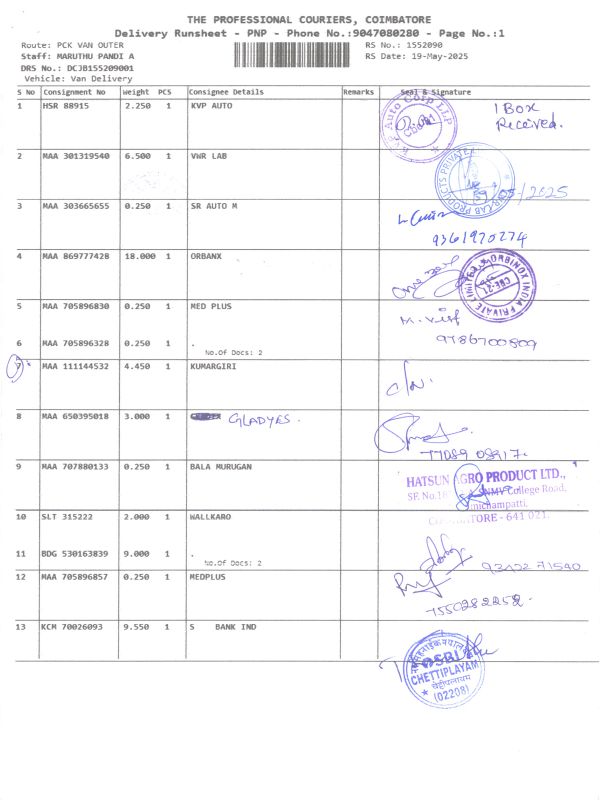 THE PROFESSIONAL COURIERS, COIMBATORE
Delivery Runsheet - PNP - Phone No.:9047080280 - Page No.:1
Route: PCK VAN OUTER RS No.: 1552090
Staff: MARUTHU PANDI A RS Date: 19-May-2025
DRS No.: DCJB155209001
Vehicle: Van Delivery
S No Consignment No Weight PCS Consignee Details Remarks Seal & Signature
1 HSR 88915 2.250 1 KVP AUTO
KVP Auto Corp LLP
1 Box
Received.
2 MAA 301319540 6.500 1 VWR LAB
LAB PRODUCTS PRIVATE
05/2025
3 MAA 303665655 0.250 1 SR AUTO M
9361970274
4 MAA 869777428 18.000 1 ORBANX
ORBINOX INDIA PRIVATE LIMITED
5 MAA 705896830 0.250 1 MED PLUS
6 MAA 705896328 0.250 1 .
No.Of Docs: 2
9786700809
7 MAA 111144532 4.450 1 KUMARGIRI
8 MAA 650395018 3.000 1 GLADYES.
77089 08917.
9 MAA 707880133 0.250 1 BALA MURUGAN
HATSUN AGRO PRODUCT LTD.,
SF. No.18 SNMV College Road,
COIMBATORE - 641 021.
10 SLT 315222 2.000 1 WALLKARO
11 BDG 530163839 9.000 1 .
No.Of Docs: 2
12 MAA 705896857 0.250 1 MEDPLUS
7550282252
13 KCM 70026093 9.550 1 S BANK IND
CHETTIPLAYAM
(02208)